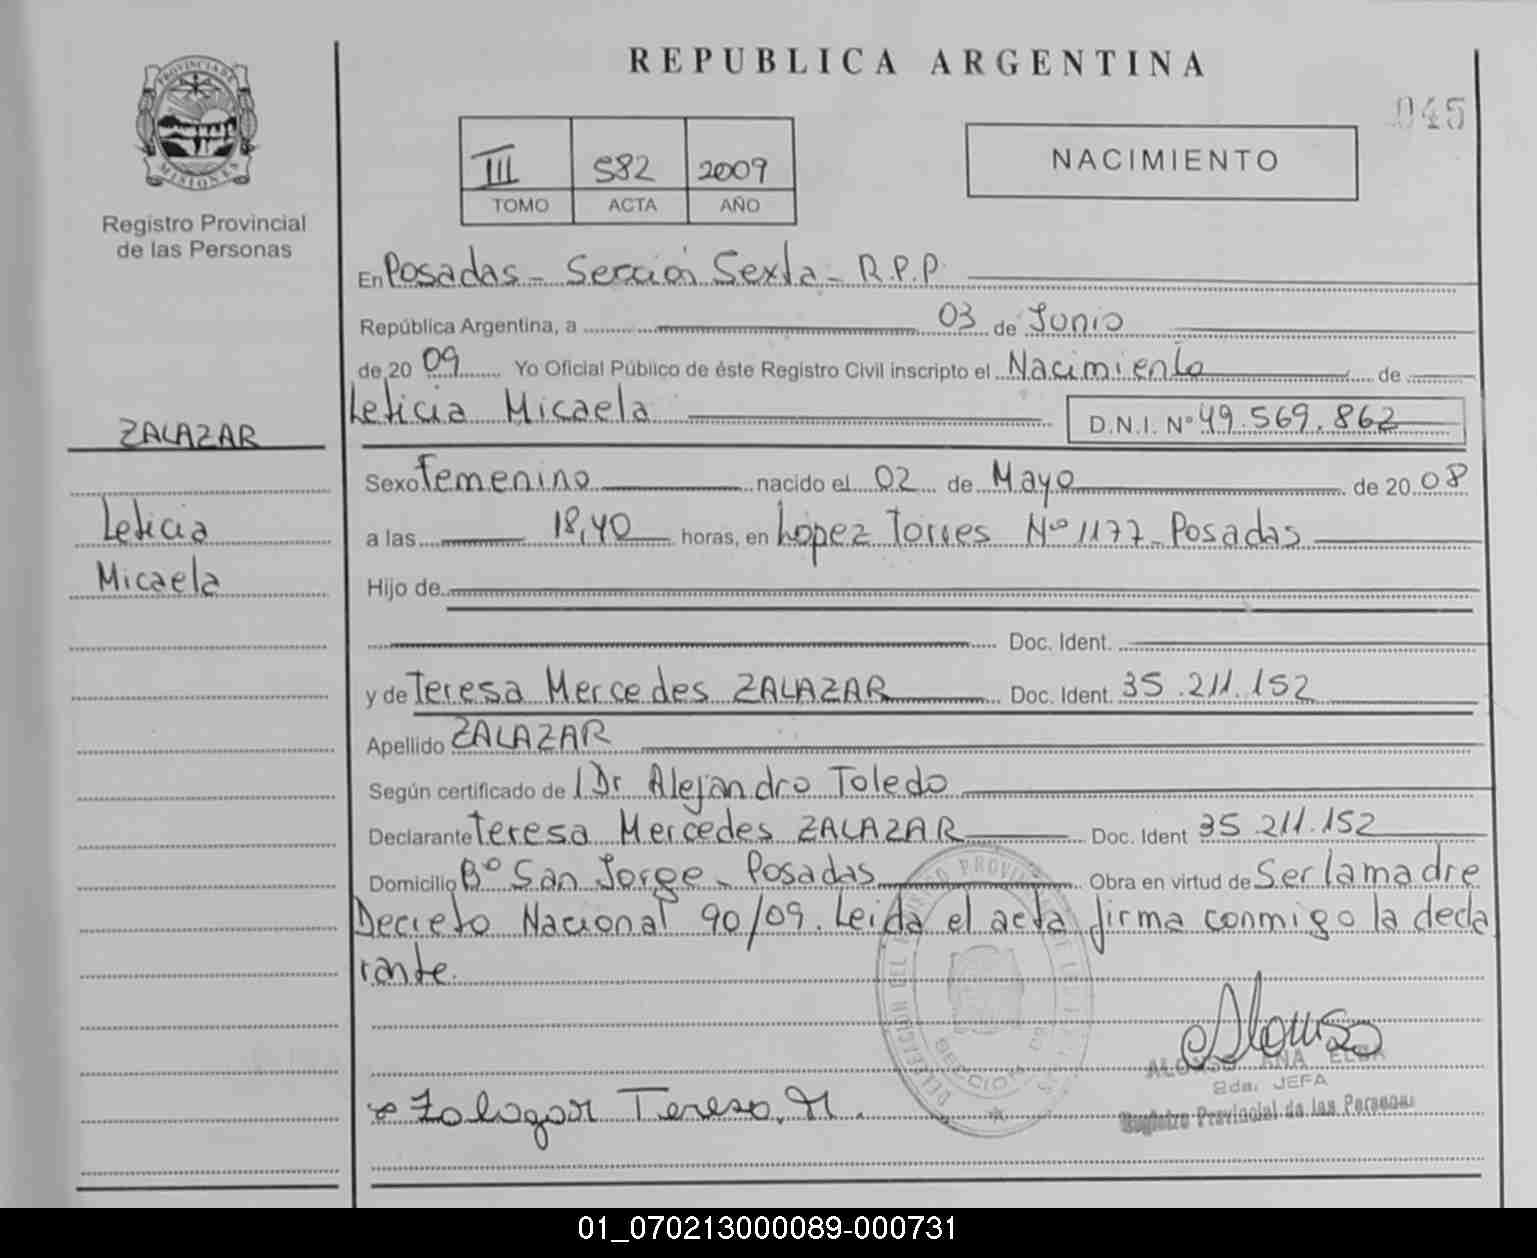 REPUBLICA ARGENTINA
045
PROVINCIA DE
MISIONES
Registro Provincial
de las Personas
III 582 2009
TOMO ACTA AÑO
NACIMIENTO
En Posadas - Sección Sexta - R.P.P.
República Argentina, a 03 de Junio
de 20 09 Yo Oficial Público de éste Registro Civil inscripto el Nacimiento de
Leticia Micaela D.N.I. Nº 49.569.862
ZALAZAR
Leticia
Micaela
Sexo Femenino nacido el 02 de Mayo de 20 08
a las 18,40 horas, en Lopez Torres Nº 1177 - Posadas
Hijo de
Doc. Ident.
y de Teresa Mercedes ZALAZAR Doc. Ident. 35.211.152
Apellido ZALAZAR
Según certificado de Dr Alejandro Toledo
Declarante Teresa Mercedes ZALAZAR Doc. Ident 35.211.152
Domicilio Bº San Jorge - Posadas Obra en virtud de Ser la madre
Decreto Nacional 90/09. Leida el acta firma conmigo la decla
rante.
Alonso
ALONSO ANA ELBA
2da. JEFA
Registro Provincial de las Personas
Zalazar Teresa, M.
SECCION
01_070213000089-000731